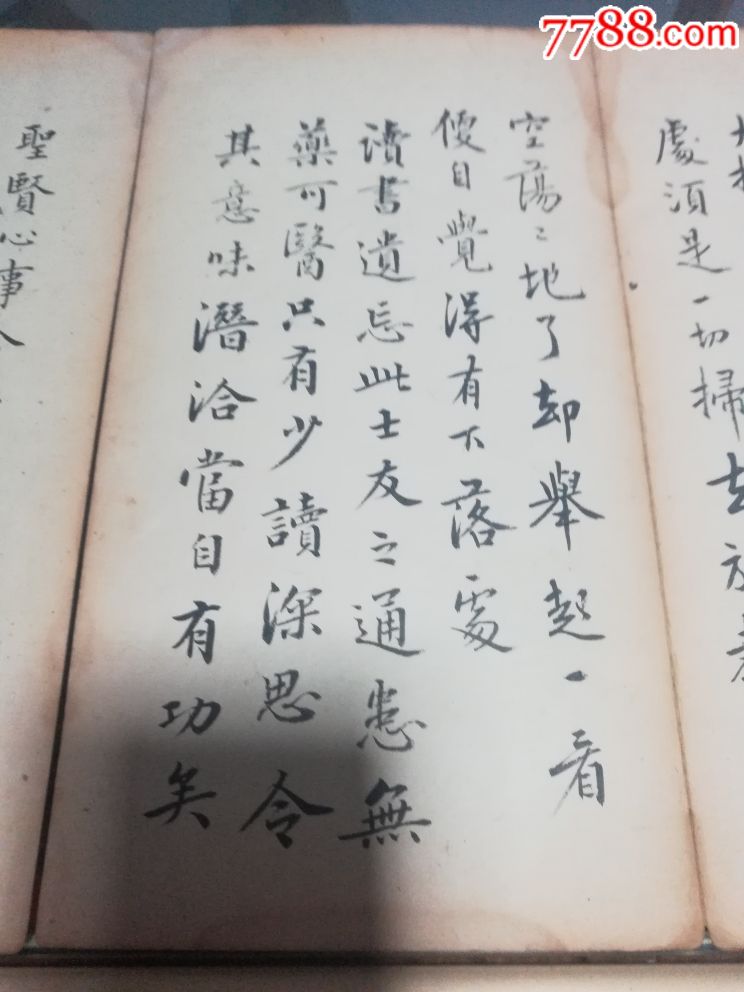 7788.com
處須是一切掃去放
空蕩〻地了却舉起一看
便自覺得有下落處
讀書遺忘此士友之通患無
藥可醫只有少讀深思令
其意味潛洽當自有功矣
聖賢心事